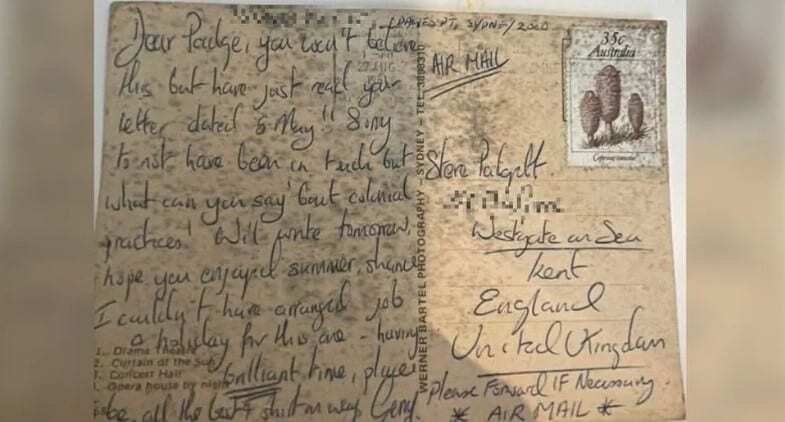 DAWES PT, SYDNEY 2000
Dear Padge, you won't believe
this but have just read your
letter dated 6 May!! Sorry
to not have been in touch but
what can you say 'bout colonial
practices! Will write tomorrow,
hope you enjoyed summer, shame
I couldn't have arranged job
a holiday for this one - having
brilliant time, player
all the best &
1. Drama Theatre
2. Curtain of the Sun
3. Concert Hall
4. Opera house by night
WERNER BARTEL PHOTOGRAPHY – SYDNEY – TEL.
35c
Australia
AIR MAIL
Steve Padgett
Westgate on Sea
Kent
England
United Kingdom
Please Forward IF Necessary.
* AIR MAIL *